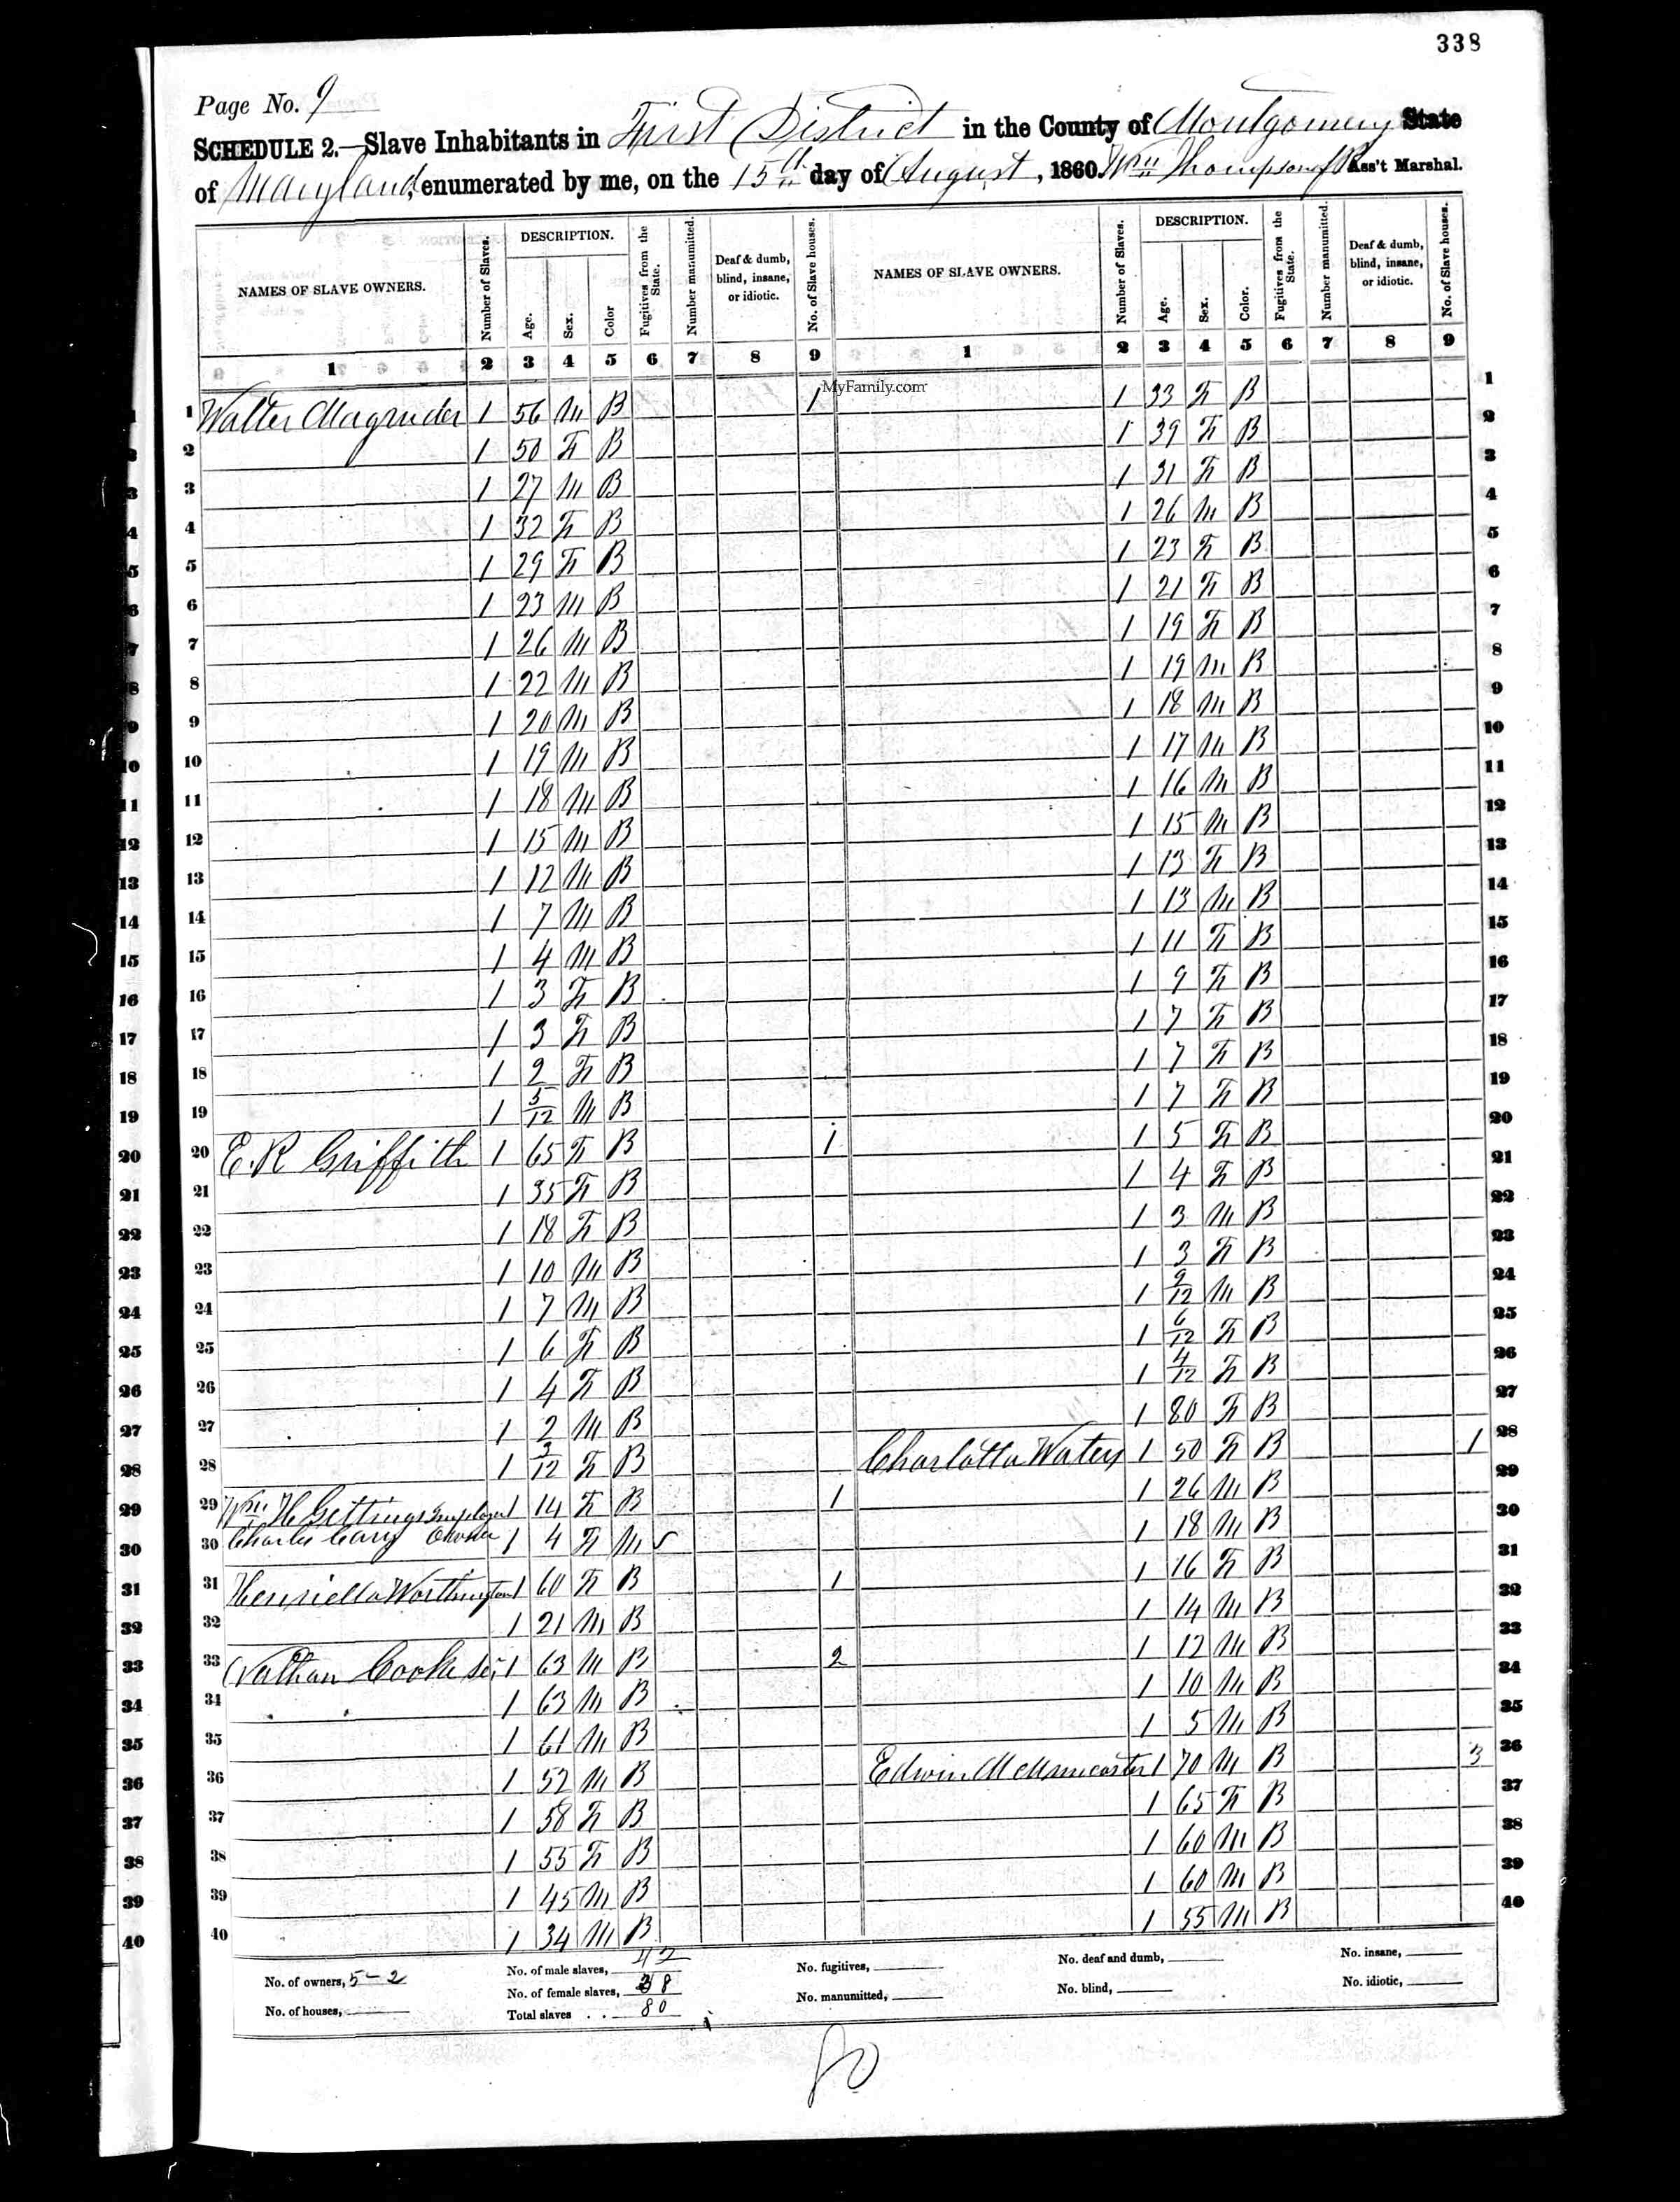 338
Page No. 9
SCHEDULE 2.—Slave Inhabitants in First District in the County of Montgomery State
of Maryland, enumerated by me, on the 15th day of August, 1860. Wm Thompson of R Ass't Marshal.
NAMES OF SLAVE OWNERS. Number of Slaves. DESCRIPTION. Age. Sex. Color Fugitives from the State. Number manumitted. Deaf & dumb, blind, insane, or idiotic. No. of Slave houses. NAMES OF SLAVE OWNERS. Number of Slaves. DESCRIPTION. Age. Sex. Color. Fugitives from the State. Number manumitted. Deaf & dumb, blind, insane, or idiotic. No. of Slave houses.
1 2 3 4 5 6 7 8 9 1 2 3 4 5 6 7 8 9
MyFamily.com
1 Walter Magruder 1 56 M B 1 1 33 F B 1
2 1 50 F B 1 39 F B 2
3 1 27 M B 1 31 F B 3
4 1 32 F B 1 26 M B 4
5 1 29 F B 1 23 F B 5
6 1 23 M B 1 21 F B 6
7 1 26 M B 1 19 F B 7
8 1 22 M B 1 19 M B 8
9 1 20 M B 1 18 M B 9
10 1 19 M B 1 17 M B 10
11 1 18 M B 1 16 M B 11
12 1 15 M B 1 15 M B 12
13 1 12 M B 1 13 F B 13
14 1 7 M B 1 13 M B 14
15 1 4 M B 1 11 F B 15
16 1 3 F B 1 9 F B 16
17 1 3 F B 1 7 F B 17
18 1 2 F B 1 7 F B 18
19 1 5/12 M B 1 7 F B 19
20 E. R Griffith 1 65 F B 1 1 5 F B 20
21 1 35 F B 1 4 F B 21
22 1 18 F B 1 3 M B 22
23 1 10 M B 1 3 F B 23
24 1 7 M B 1 9/12 M B 24
25 1 6 F B 1 6/12 F B 25
26 1 4 F B 1 4/12 F B 26
27 1 2 M B 1 80 F B 27
28 1 3/12 F B Charlotta Waters 1 50 F B 1 28
29 Wm H Gettings Employer 1 14 F B 1 1 26 M B 29
30 Charles Cary Owner 1 4 F M 1 18 M B 30
31 Henrietta Worthington 1 60 F B 1 1 16 F B 31
32 1 21 M B 1 14 M B 32
33 Nathan Cooke Sr 1 63 M B 2 1 12 M B 33
34 1 63 M B 1 10 M B 34
35 1 61 M B 1 5 M B 35
36 1 52 M B Edwin M Muncaster 1 70 M B 3 36
37 1 58 F B 1 65 F B 37
38 1 55 F B 1 60 M B 38
39 1 45 M B 1 60 M B 39
40 1 34 M B 1 55 M B 40
No. of owners, 5-2 No. of male slaves, 42 No. fugitives, No. deaf and dumb, No. insane,
No. of houses, No. of female slaves, 38 No. manumitted, No. blind, No. idiotic,
Total slaves . . 80
80